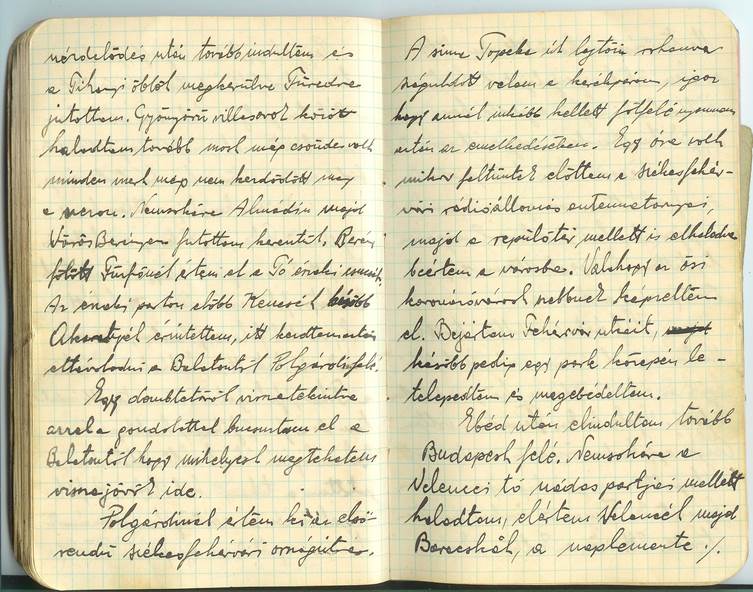 nézdelődés után tovább indultam és
a Tihanyi öblöt megkerülve Füredre
jutottam. Gyönyörű villasorok között
haladtam tovább most még csöndes volt
minden mert még nem kezdődött meg
a szezon. Nemsokára Almádin majd
VörösBerényen futottam keresztül. Berény
fölött Fűzfőnél értem el a Tó északi
Az északi parton előbb Kenesét később
Akarattyát érintettem, itt kezdtem aztán
eltávolodni a Balatontól Polgárdi felé.
Egy dombtetőről visszatekintve
azzal a gondolattal búcsúztam el a
Balatontól hogy mihelyest megtehetem
visszajövök ide.
Polgárdinál értem ki az első-
rendű székesfehérvári országútra.
A sima Topeka út lejtőin rohanva
száguldott velem a kerékpárom, igaz
hogy annál inkább kellett fölfelé nyomnom
aztán az emelkedésekben. Egy óra volt
mikor feltűntek előttem a székesfehér-
vári rádióállomás antennatornyai,
majd a repülőtér mellett is elhaladva
beértem a városba. Valahogy az ősi
koronázóvárost szebbnek képzeltem
el. Bejártam Fehérvár utcáit, majd
később pedig egy park közepén le-
telepedtem és megebédeltem.
Ebéd után elindultam tovább
Budapest felé. Nemsokára a
Velencei tó nádas partjai mellett
haladtam, elértem Velencét majd
Baracskát, a naplemente ./.